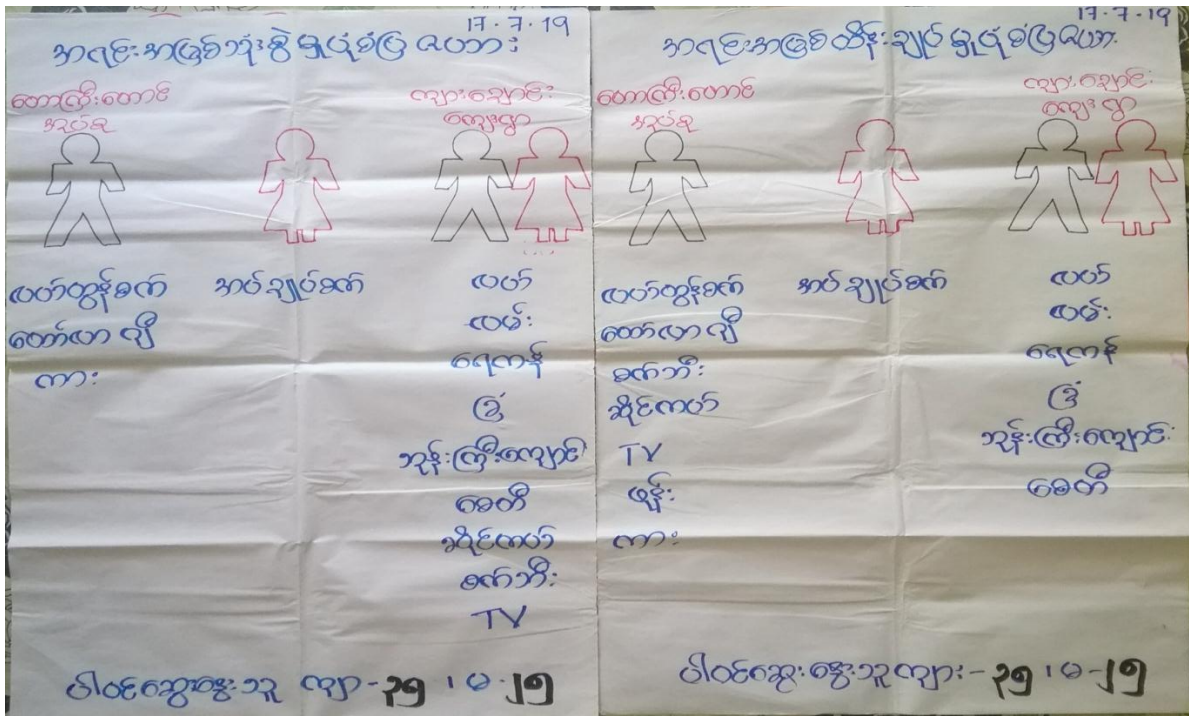 17.7.19
အရင်းအမြစ်သုံးစွဲမှုပုံစံပြဇယား
တောကြီးတောင်
အုပ်စု
ကျားချောင်း
ကျေးရွာ
လယ်ထွန်စက်
တော်လာဂျီ
ကား
အပ်ချုပ်စက်
လယ်
လမ်း
ရေကန်
ခြံ
ဘုန်းကြီးကျောင်း
စေတီ
ဆိုင်ကယ်
စက်ဘီး
TV
ပါဝင်ဆွေးနွေးသူ ကျား-၃၅ ၊ မ-၂၅
17.7.19
အရင်းအမြစ်ထိန်းချုပ်မှုပုံစံပြဇယား
တောကြီးတောင်
အုပ်စု
ကျားချောင်း
ကျေးရွာ
လယ်ထွန်စက်
တော်လာဂျီ
စက်ဘီး
ဆိုင်ကယ်
TV
ဖုန်း
ကား
အပ်ချုပ်စက်
လယ်
လမ်း
ရေကန်
ခြံ
ဘုန်းကြီးကျောင်း
စေတီ
ပါဝင်ဆွေးနွေးသူ ကျား-၃၅ ၊ မ-၂၅